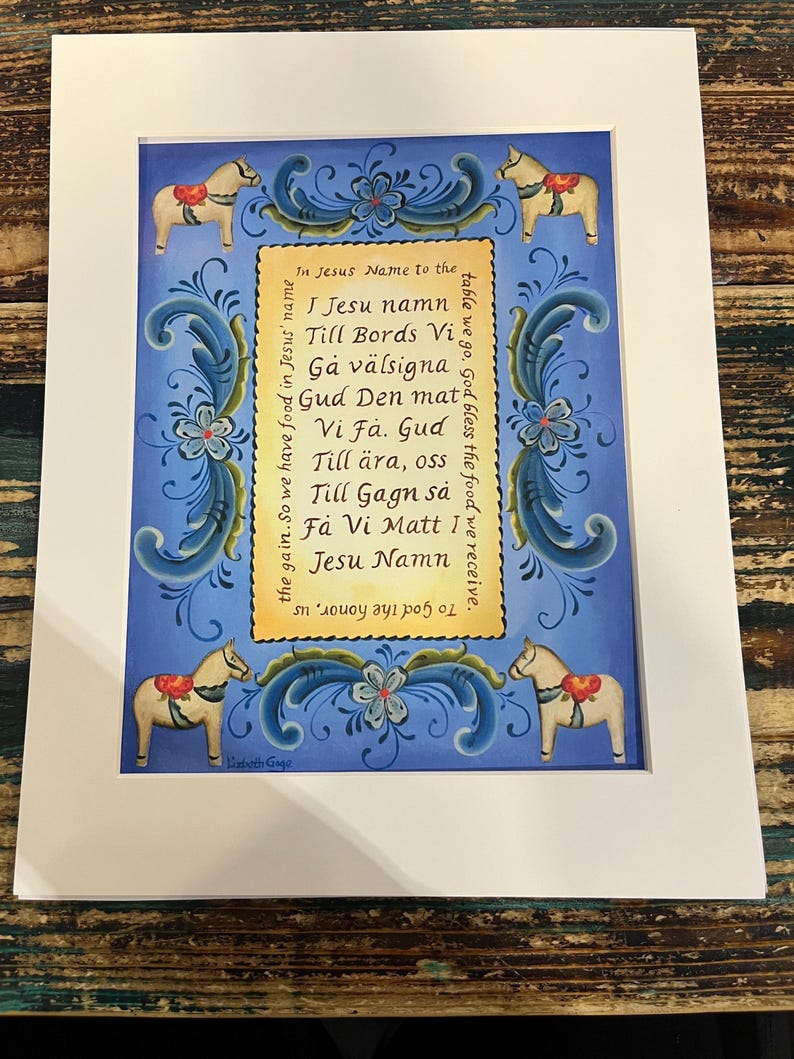 In Jesus Name to the
table we go. God bless the food we receive.
To God the honor, us
the gain. So we have food in Jesus' name
I Jesu namn
Till Bords Vi
Gå välsigna
Gud Den mat
Vi Få. Gud
Till ära, oss
Till Gagn så
Få Vi Matt I
Jesu Namn
Lisbeth Gage